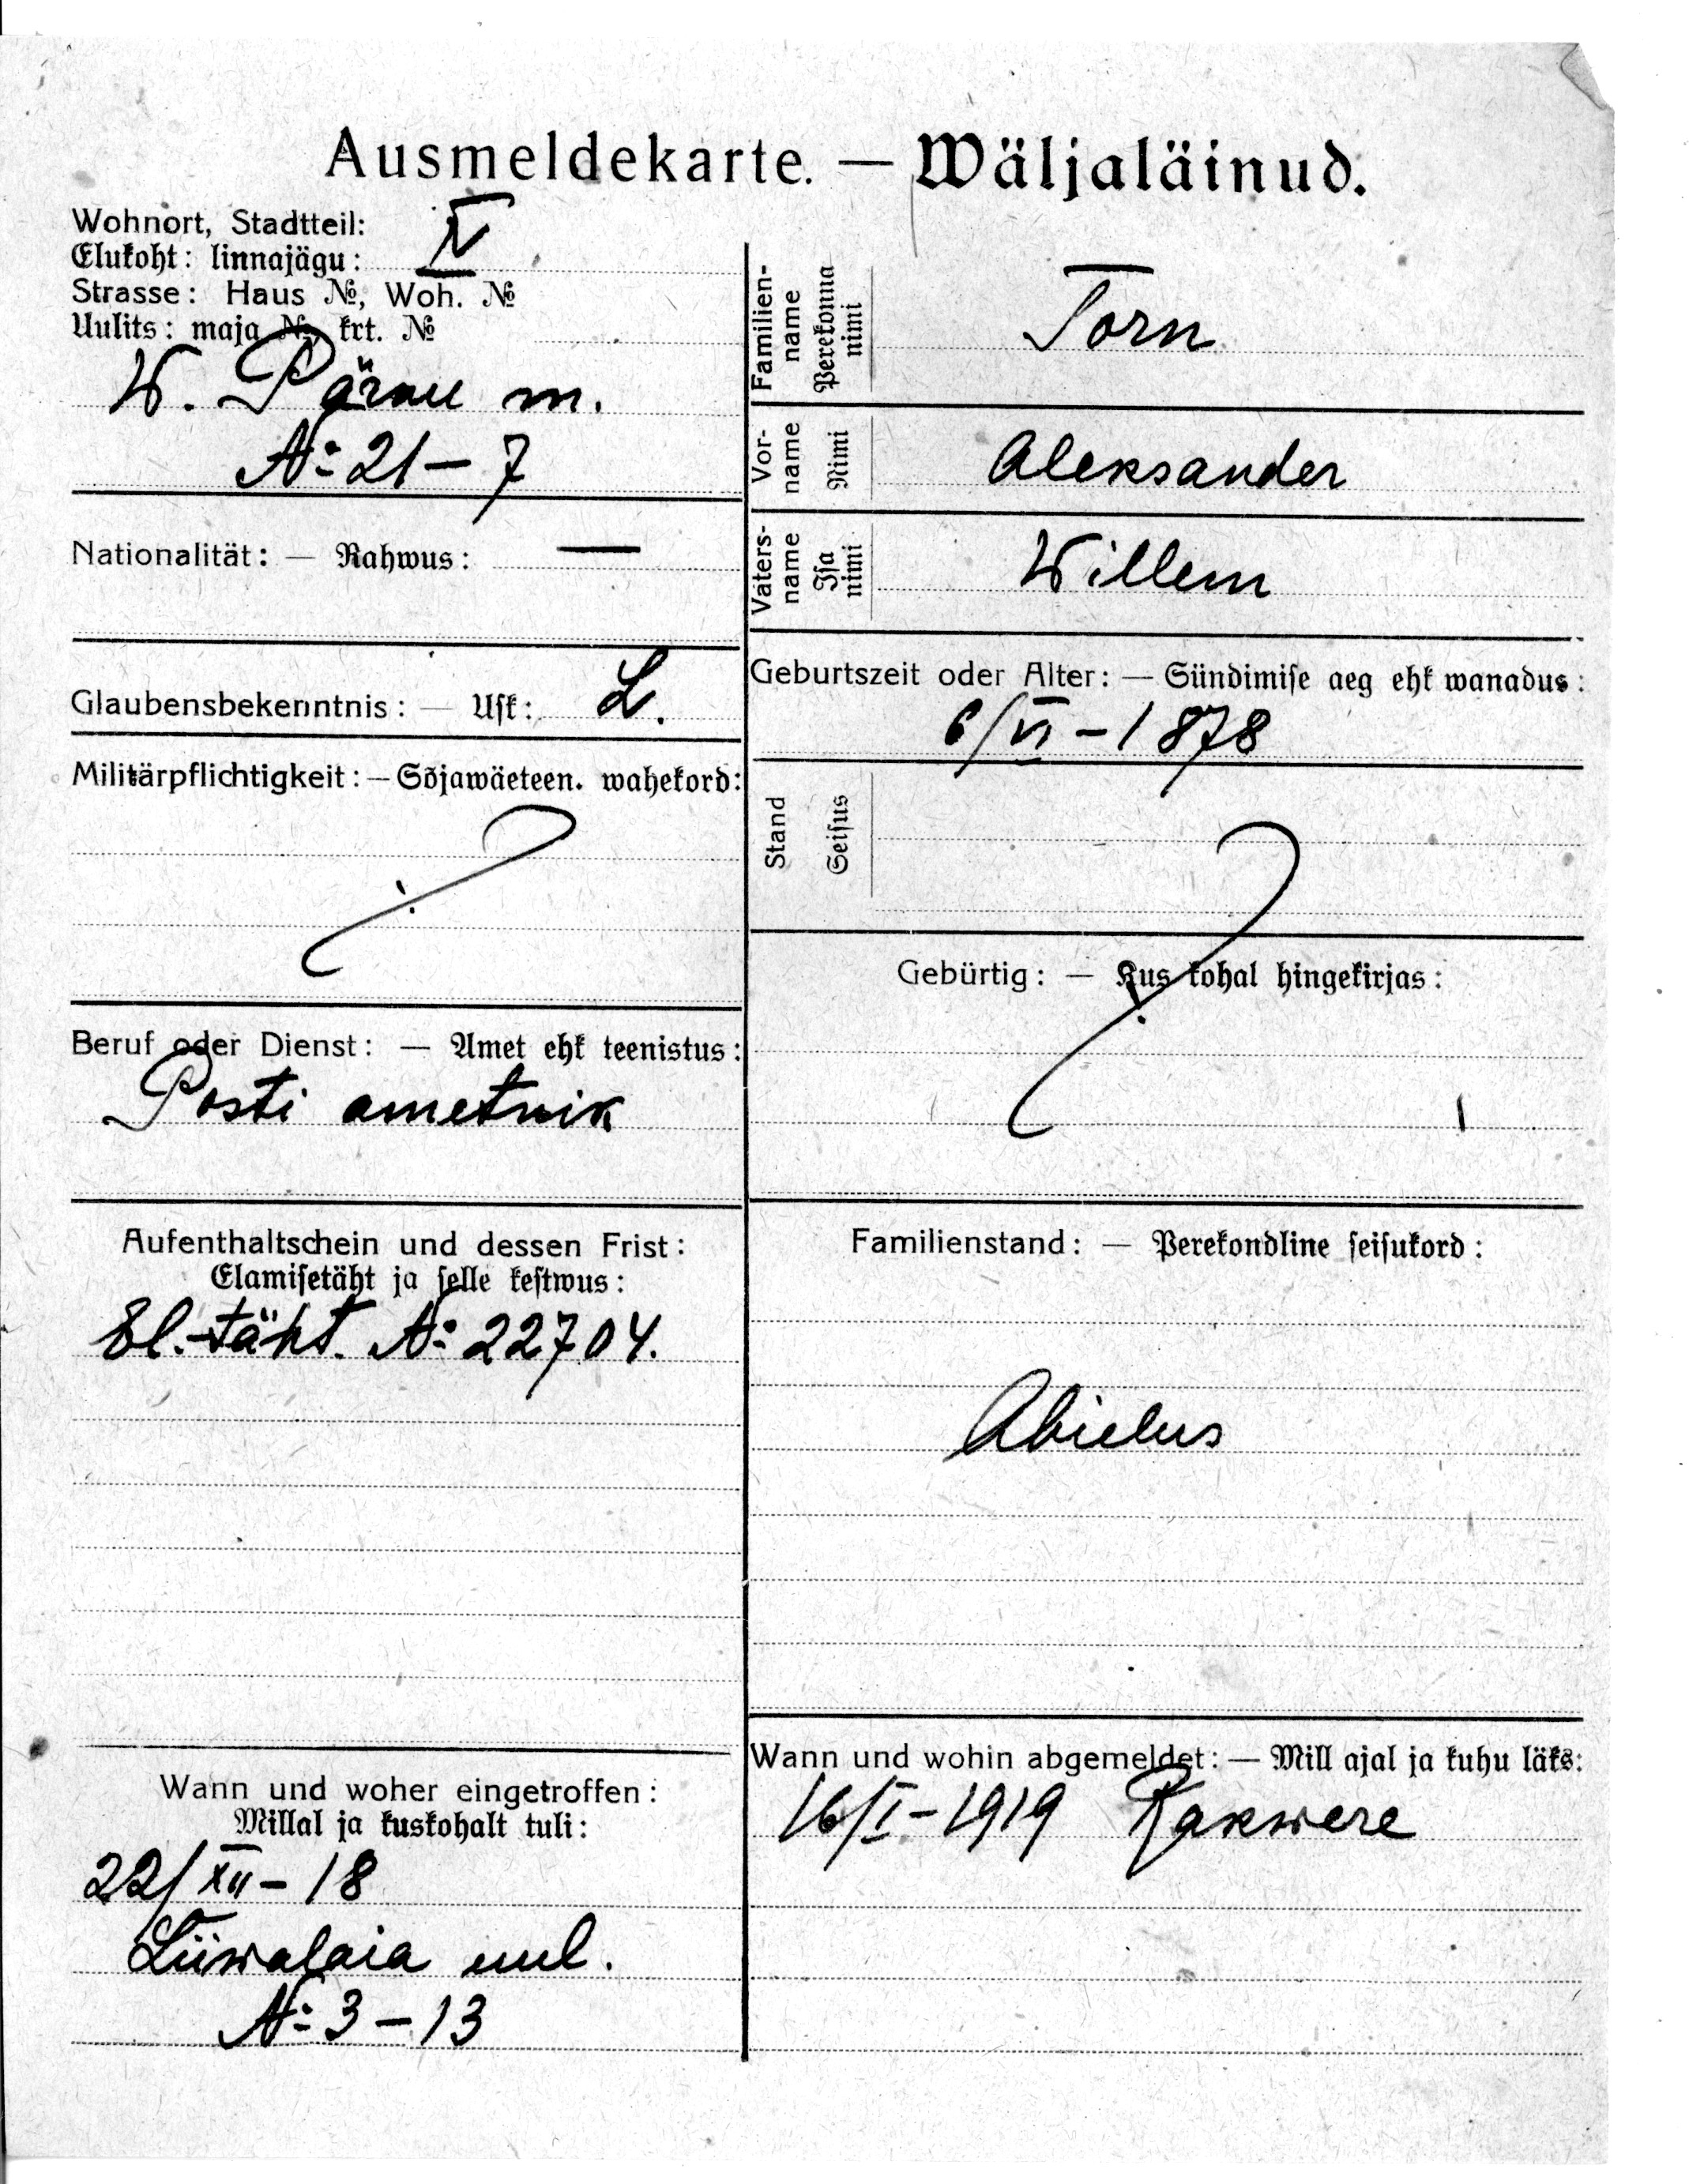 Ausmeldekarte. — Wäljaläinud.
Wohnort, Stadtteil:
Elukoht: linnajägu:
Strasse: Haus №, Woh. №
Uulits: maja №, krt. №
W. Pärnu m.
№ 21 – 7
Nationalität: — Rahwus: —
Glaubensbekenntnis: — Usk: L.
Militärpflichtigkeit: — Sõjawäeteen. wahekord:
?
Beruf oder Dienst: — Amet ehk teenistus:
Posti ametnik
Aufenthaltschein und dessen Frist:
Elamisetäht ja selle kestwus:
El.-täht. № 22704.
Wann und woher eingetroffen:
Millal ja kuskohalt tuli:
22/XII – 18
Liiwalaia uul.
№ 3 – 13
Familien-
name
Perekonna
nimi
Torn
Vor-
name
Nimi
Aleksander
Vaters-
name
Isa
nimi
Willem
Geburtszeit oder Alter: — Sündimise aeg ehk wanadus:
6/VI – 1878
Stand
Seisus
?
Gebürtig: — Kus kohal hingekirjas:
Familienstand: — Perekondline seisukord:
Abielus
Wann und wohin abgemeldet: — Mill ajal ja kuhu läks:
16/I – 1919 Rakwere